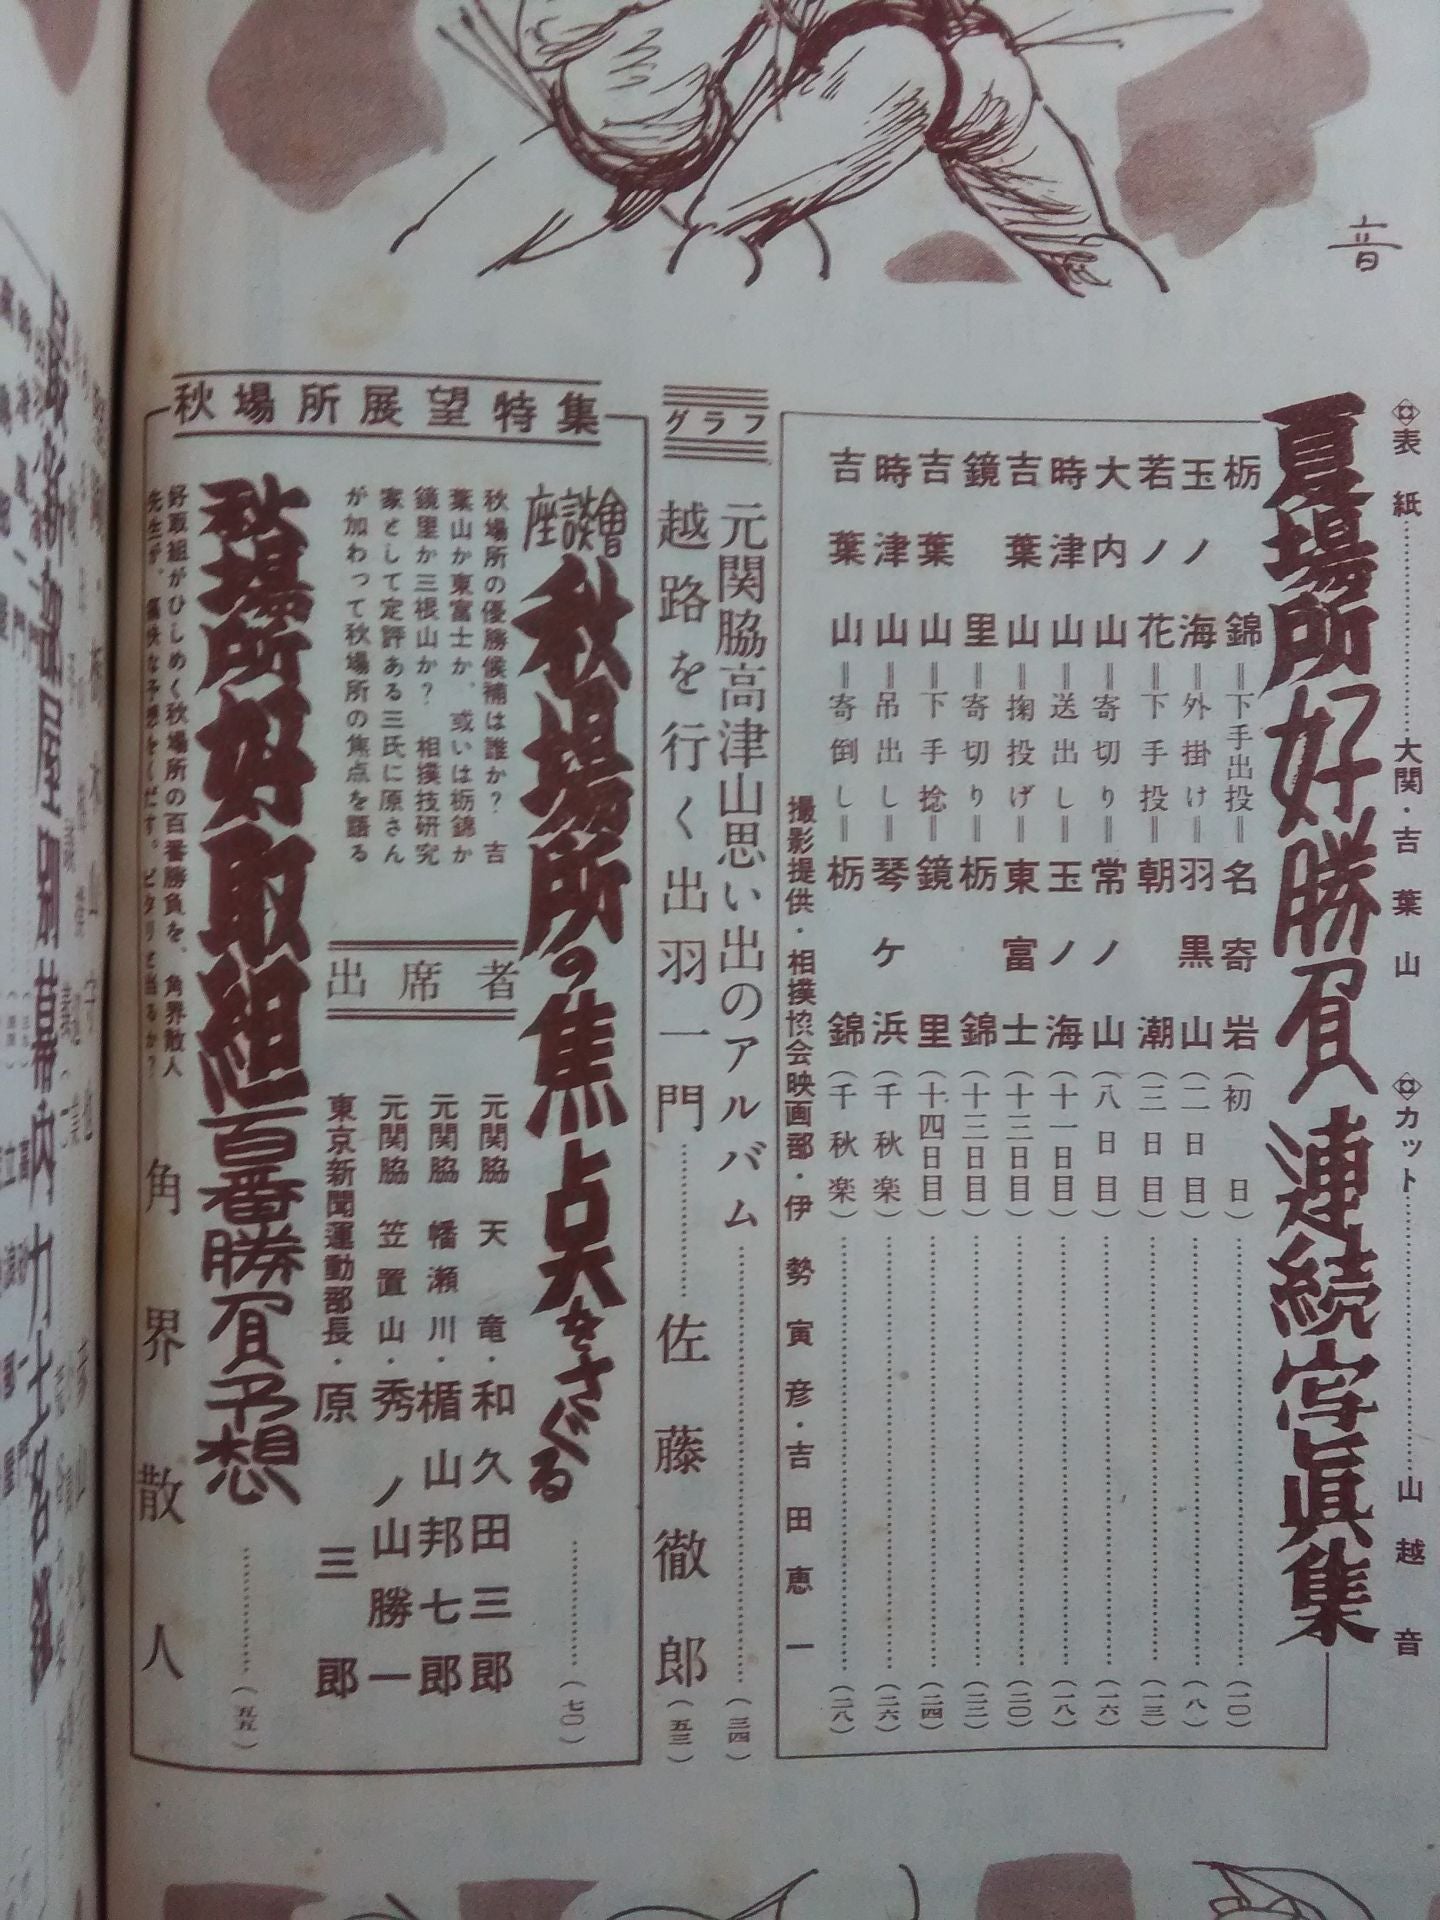 音
◇表紙……………大関・吉葉山
◇カット……………山越音
夏場所好勝負連続写眞集
栃錦=下手出投=名寄岩(初日)……………(一〇)
玉ノ海=外掛け=羽黒山(二日目)……………(八)
若ノ花=下手投=朝潮(三日目)……………(一三)
大内山=寄切り=常ノ山(八日目)……………(一六)
時津山=送出し=玉ノ海(十一日目)……………(一八)
吉葉山=掬投げ=東富士(十三日目)……………(二〇)
鏡里=寄切り=栃錦(十三日目)……………(二二)
吉葉山=下手捻=鏡里(十四日目)……………(二四)
時津山=吊出し=琴ケ浜(千秋楽)……………(二六)
吉葉山=寄倒し=栃錦(千秋楽)……………(二八)
撮影提供・相撲協会映画部・伊勢寅彦・吉田恵一
グラフ
元関脇高津山思い出のアルバム……………(三四)
越路を行く出羽一門………佐藤徹郎(五三)
秋場所展望特集
座談會 秋場所の焦点をさぐる………(七〇)
秋場所の優勝候補は誰か?吉
葉山か東富士か、或いは栃錦か
鏡里か三根山か? 相撲技研究
家として定評ある三氏に原さん
が加わって秋場所の焦点を語る
出席者
元関脇 天竜・和久田三郎
元関脇 幡瀬川・楯山邦七郎
元関脇 笠置山・秀ノ山勝一
東京新聞運動部長・原三郎
秋場所好取組百番勝負予想………(五五)
好取組がひしめく秋場所の百番勝負を、角界散人
先生が、痛快な予想をくだす。ピタリと当るか?
角界散人